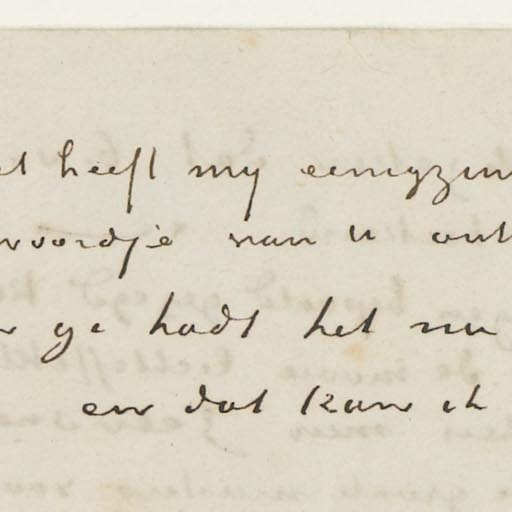 et heeft my eenigzin
woordje van U ont
ge hadt het nu
en dat kan ik